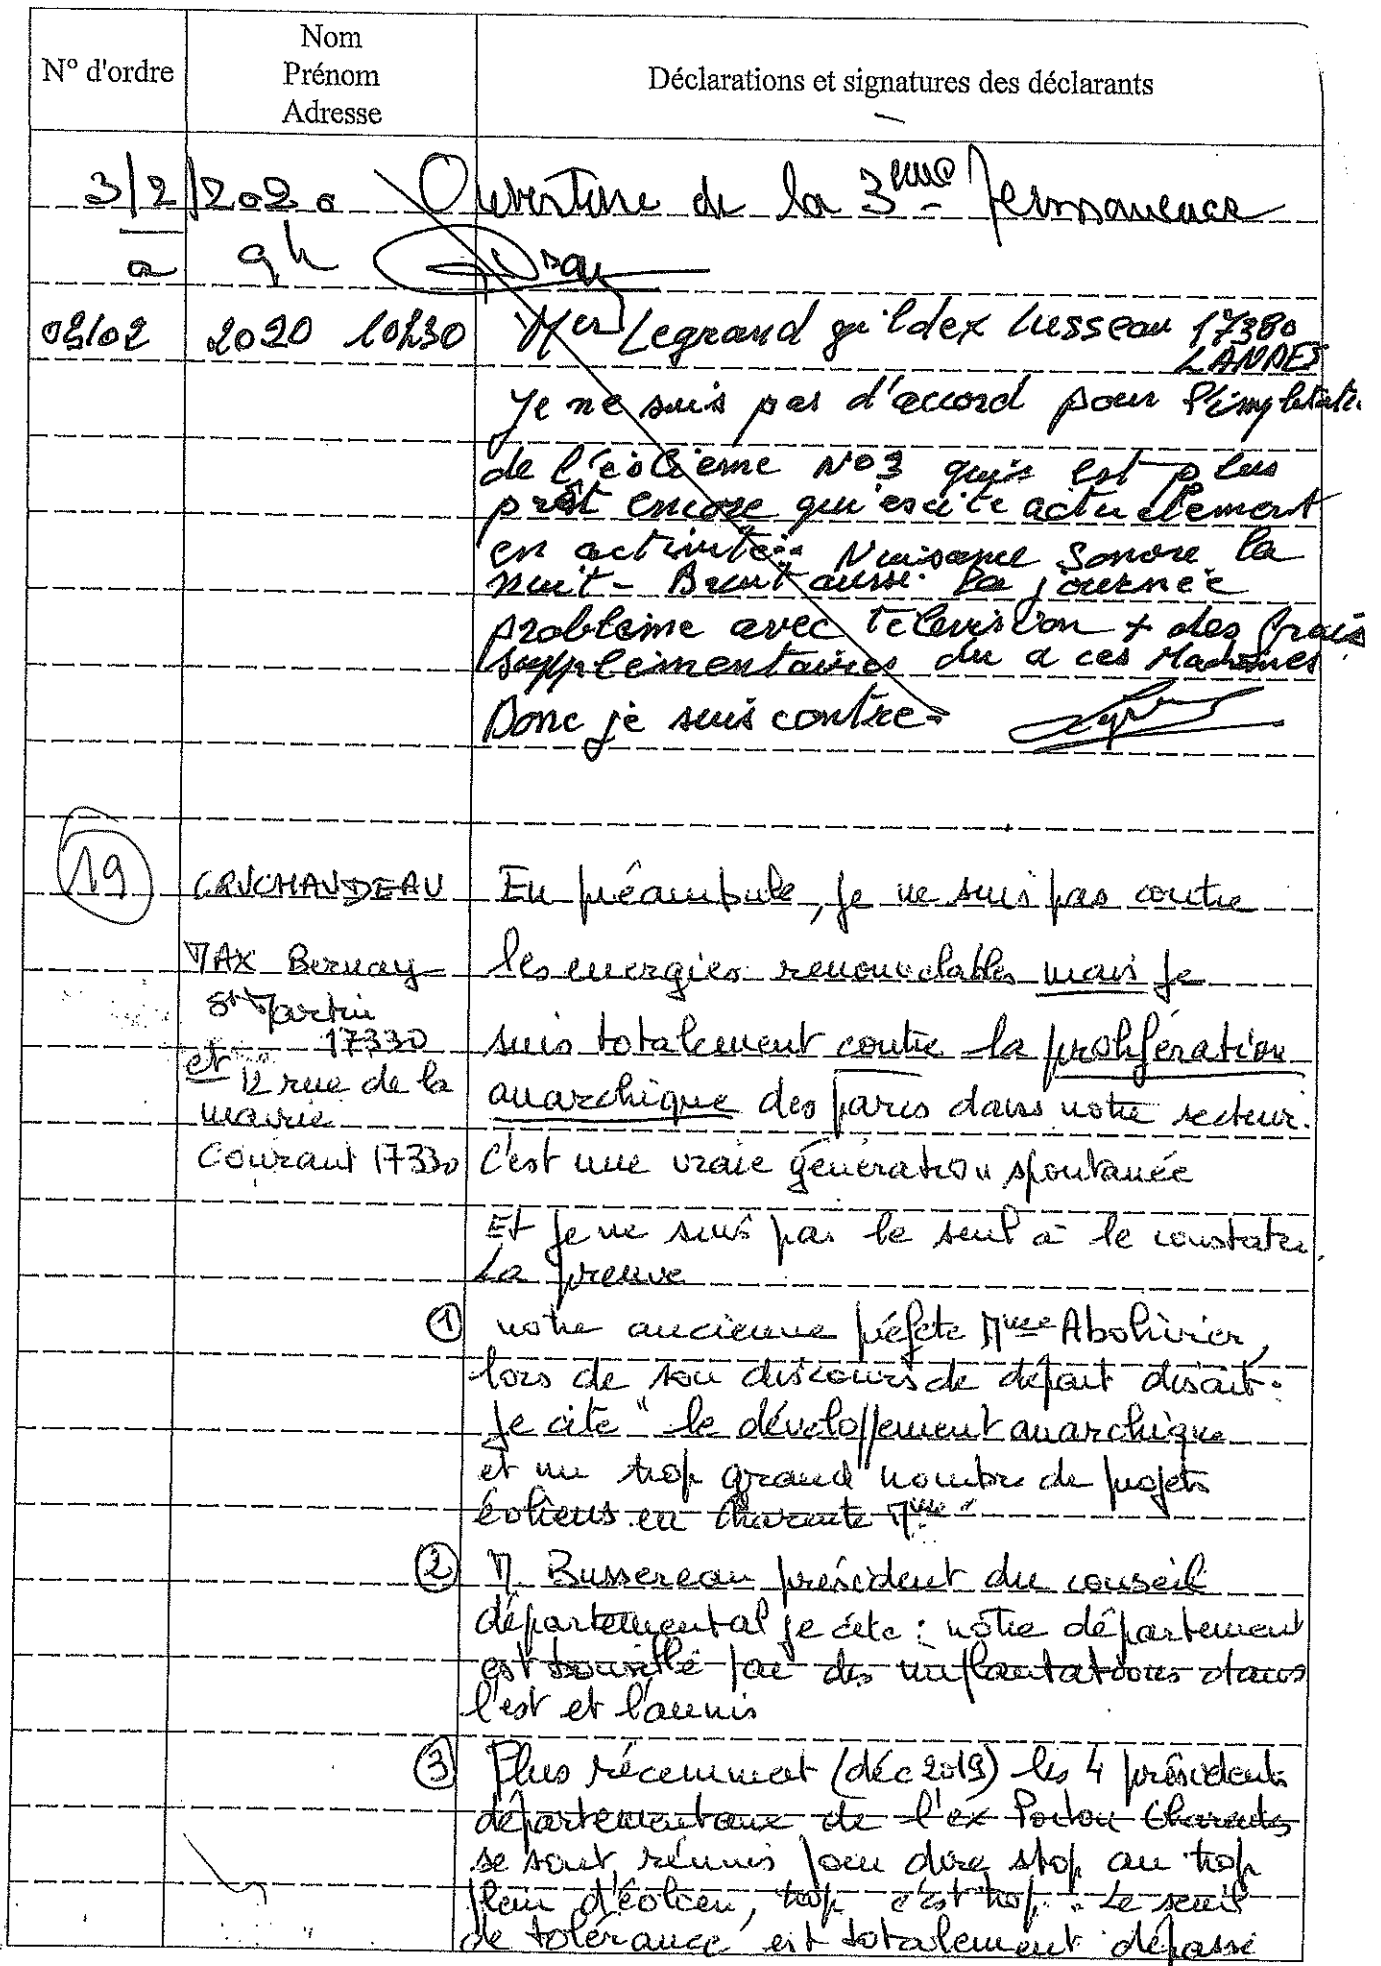 N° d'ordre
Nom
Prénom
Adresse
Déclarations et signatures des déclarants
3/2/2020 Ouverture de la 3ème permanence
a 9h
03/02 2020 10h30 Legrand gu'ldex Lusseau 17380
LANDES
Je ne suis pas d'accord pour
de l'éolieme No3 quie est plus
prêt encore actuelement
en activité.. Nuisance Sonore la
nuit - Bruit aussi la journée
problème avec télévision + des frais
supplémentaires du a ces Machines.
Donc je suis contre.
19 CRUCHAUDEAU En préambule, je ne suis pas contre
MAX Bernay les energies renouvelables mais je
St Martin
17330 suis totalement contre la prolifération
et 12 rue de la
mairie anarchique des parcs dans notre secteur.
Courant 17330 C'est une vraie génération spontanée
Et je ne suis pas le seul à le constater.
La preuve
① notre ancienne préfète Mme Abolivier,
lors de son discours de départ disait.
je cite " le développement anarchique
et un trop grand nombre de projets
éoliens en Charente Mme "
② M. Bussereau président du conseil
départemental je cite : notre département
est souillé par des implantations dans
l'est et l'aunis
③ Plus récemment (déc 2019) les 4 présidents
départementaux de l'ex Poitou Charentes
se sont réunis pour dire stop au trop
plein d'éolien, trop c'est trop. Le seuil
de tolérance est totalement dépassé